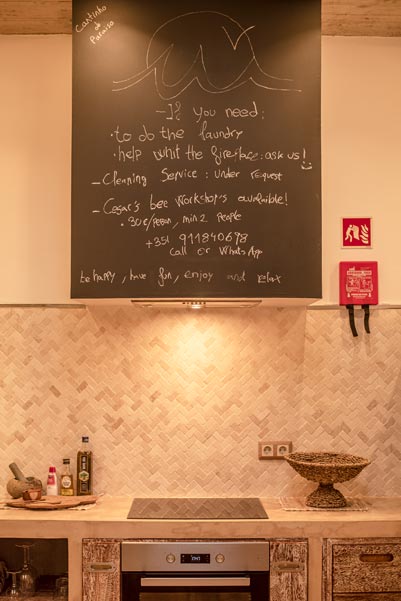 Cantinho
do
Paraíso
- If you need:
• to do the laundry
• help whit the fireplace: ask us!
- Cleaning Service: under request
- Cesar's bee workshops available!
• 30€/person, min 2 people
+351 911840678
call or WhatsApp
be happy, have fun, enjoy and relax